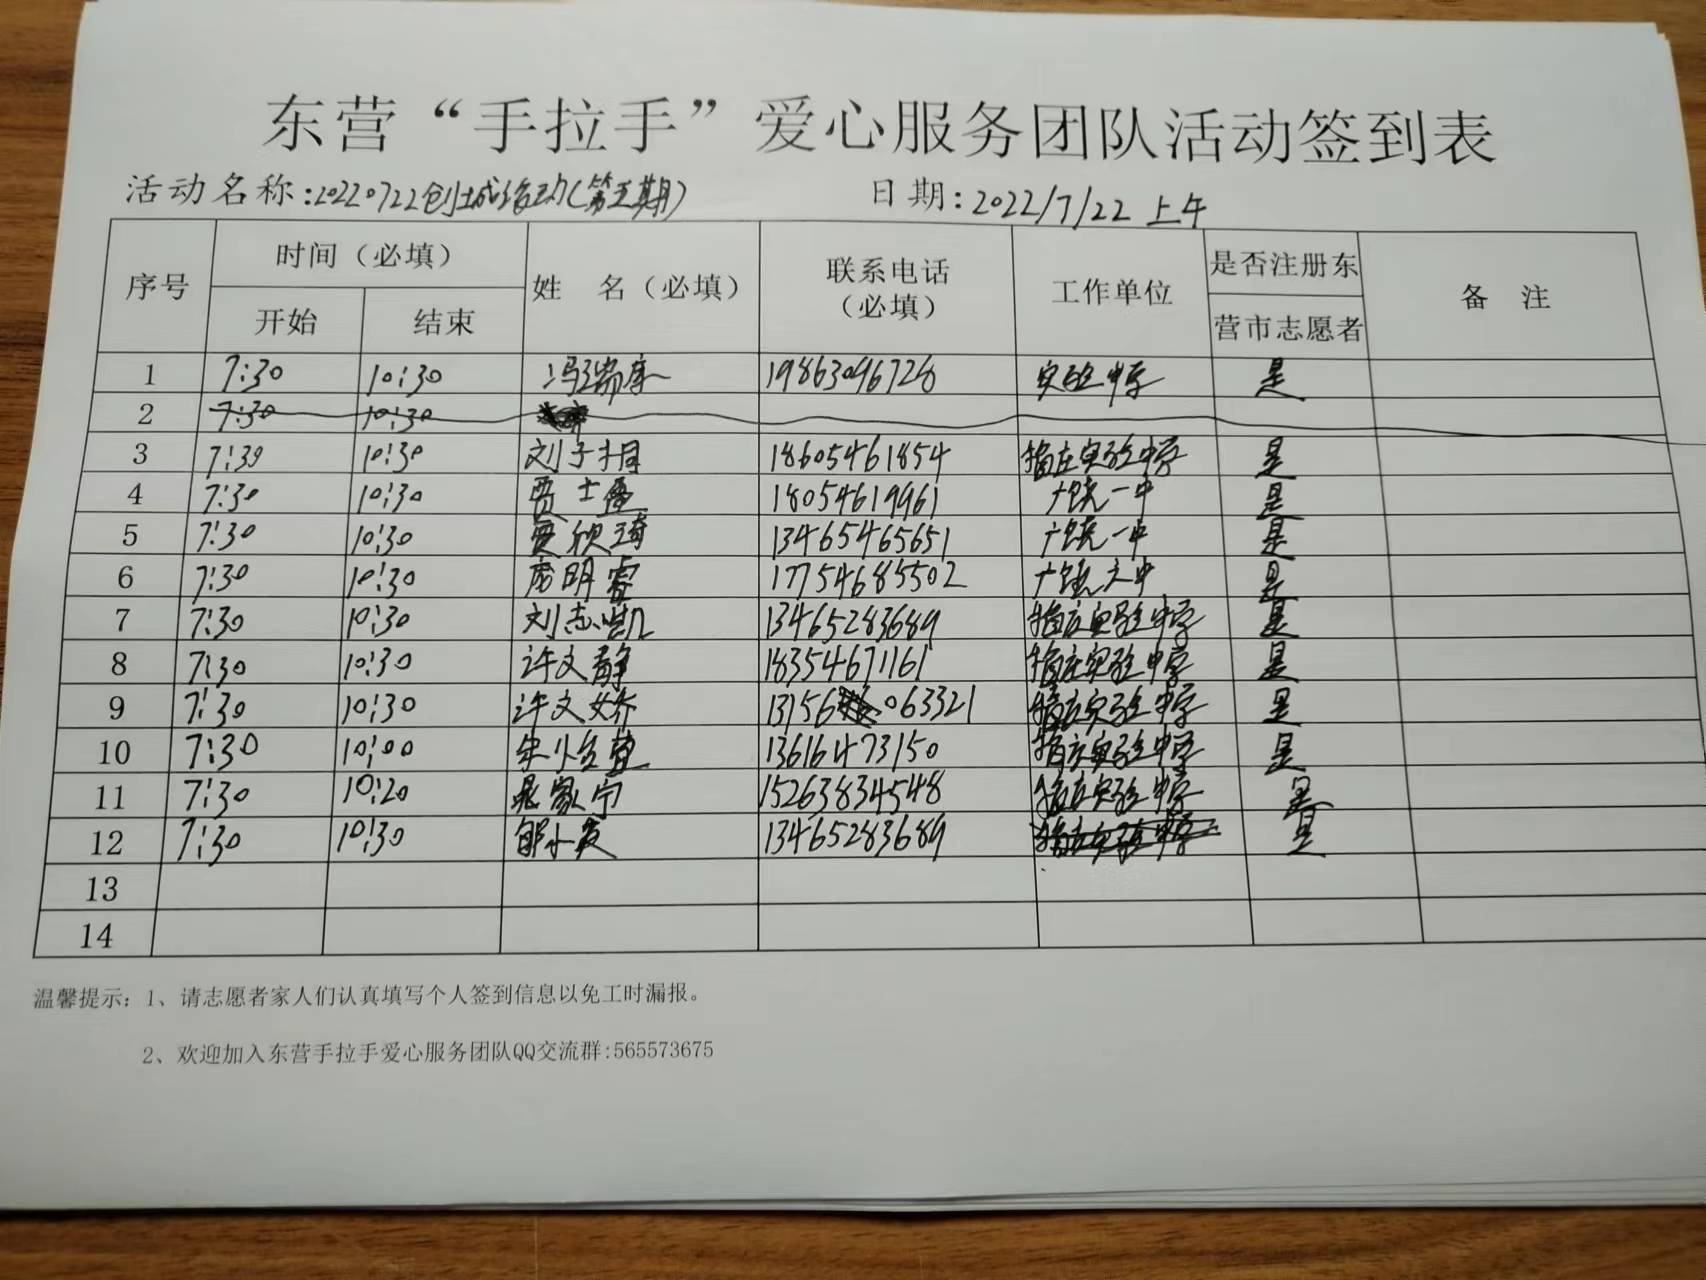 东营“手拉手”爱心服务团队活动签到表
活动名称:20220722创城活动(第五期) 日期:2022/7/22 上午
序号 时间（必填） 姓 名（必填） 联系电话（必填） 工作单位 是否注册东营市志愿者 备 注
开始 结束
1 7:30 10:30 冯瑞康 19863096728 实验中学 是
2 7:30 10:30
3 7:30 10:30 刘子 18605461854 稻庄实验中学 是
4 7:30 10:30 贾士 18054619961 广饶一中 是
5 7:30 10:30 贾欣琦 13465465651 广饶一中 是
6 7:30 10:30 明睿 17754685502 广饶六中 是
7 7:30 10:30 刘志凯 13465283689 稻庄实验中学 是
8 7:30 10:30 许文静 18354671161 稻庄实验中学 是
9 7:30 10:30 许文娇 13156063321 稻庄实验中学 是
10 7:30 10:00 13616473150 稻庄实验中学 是
11 7:30 10:20 家宁 15263834548 稻庄实验中学 是
12 7:30 10:30 邹小 13465283689 稻庄实验中学 是
13
14
温馨提示：1、请志愿者家人们认真填写个人签到信息以免工时漏报。
2、欢迎加入东营手拉手爱心服务团队QQ交流群:565573675